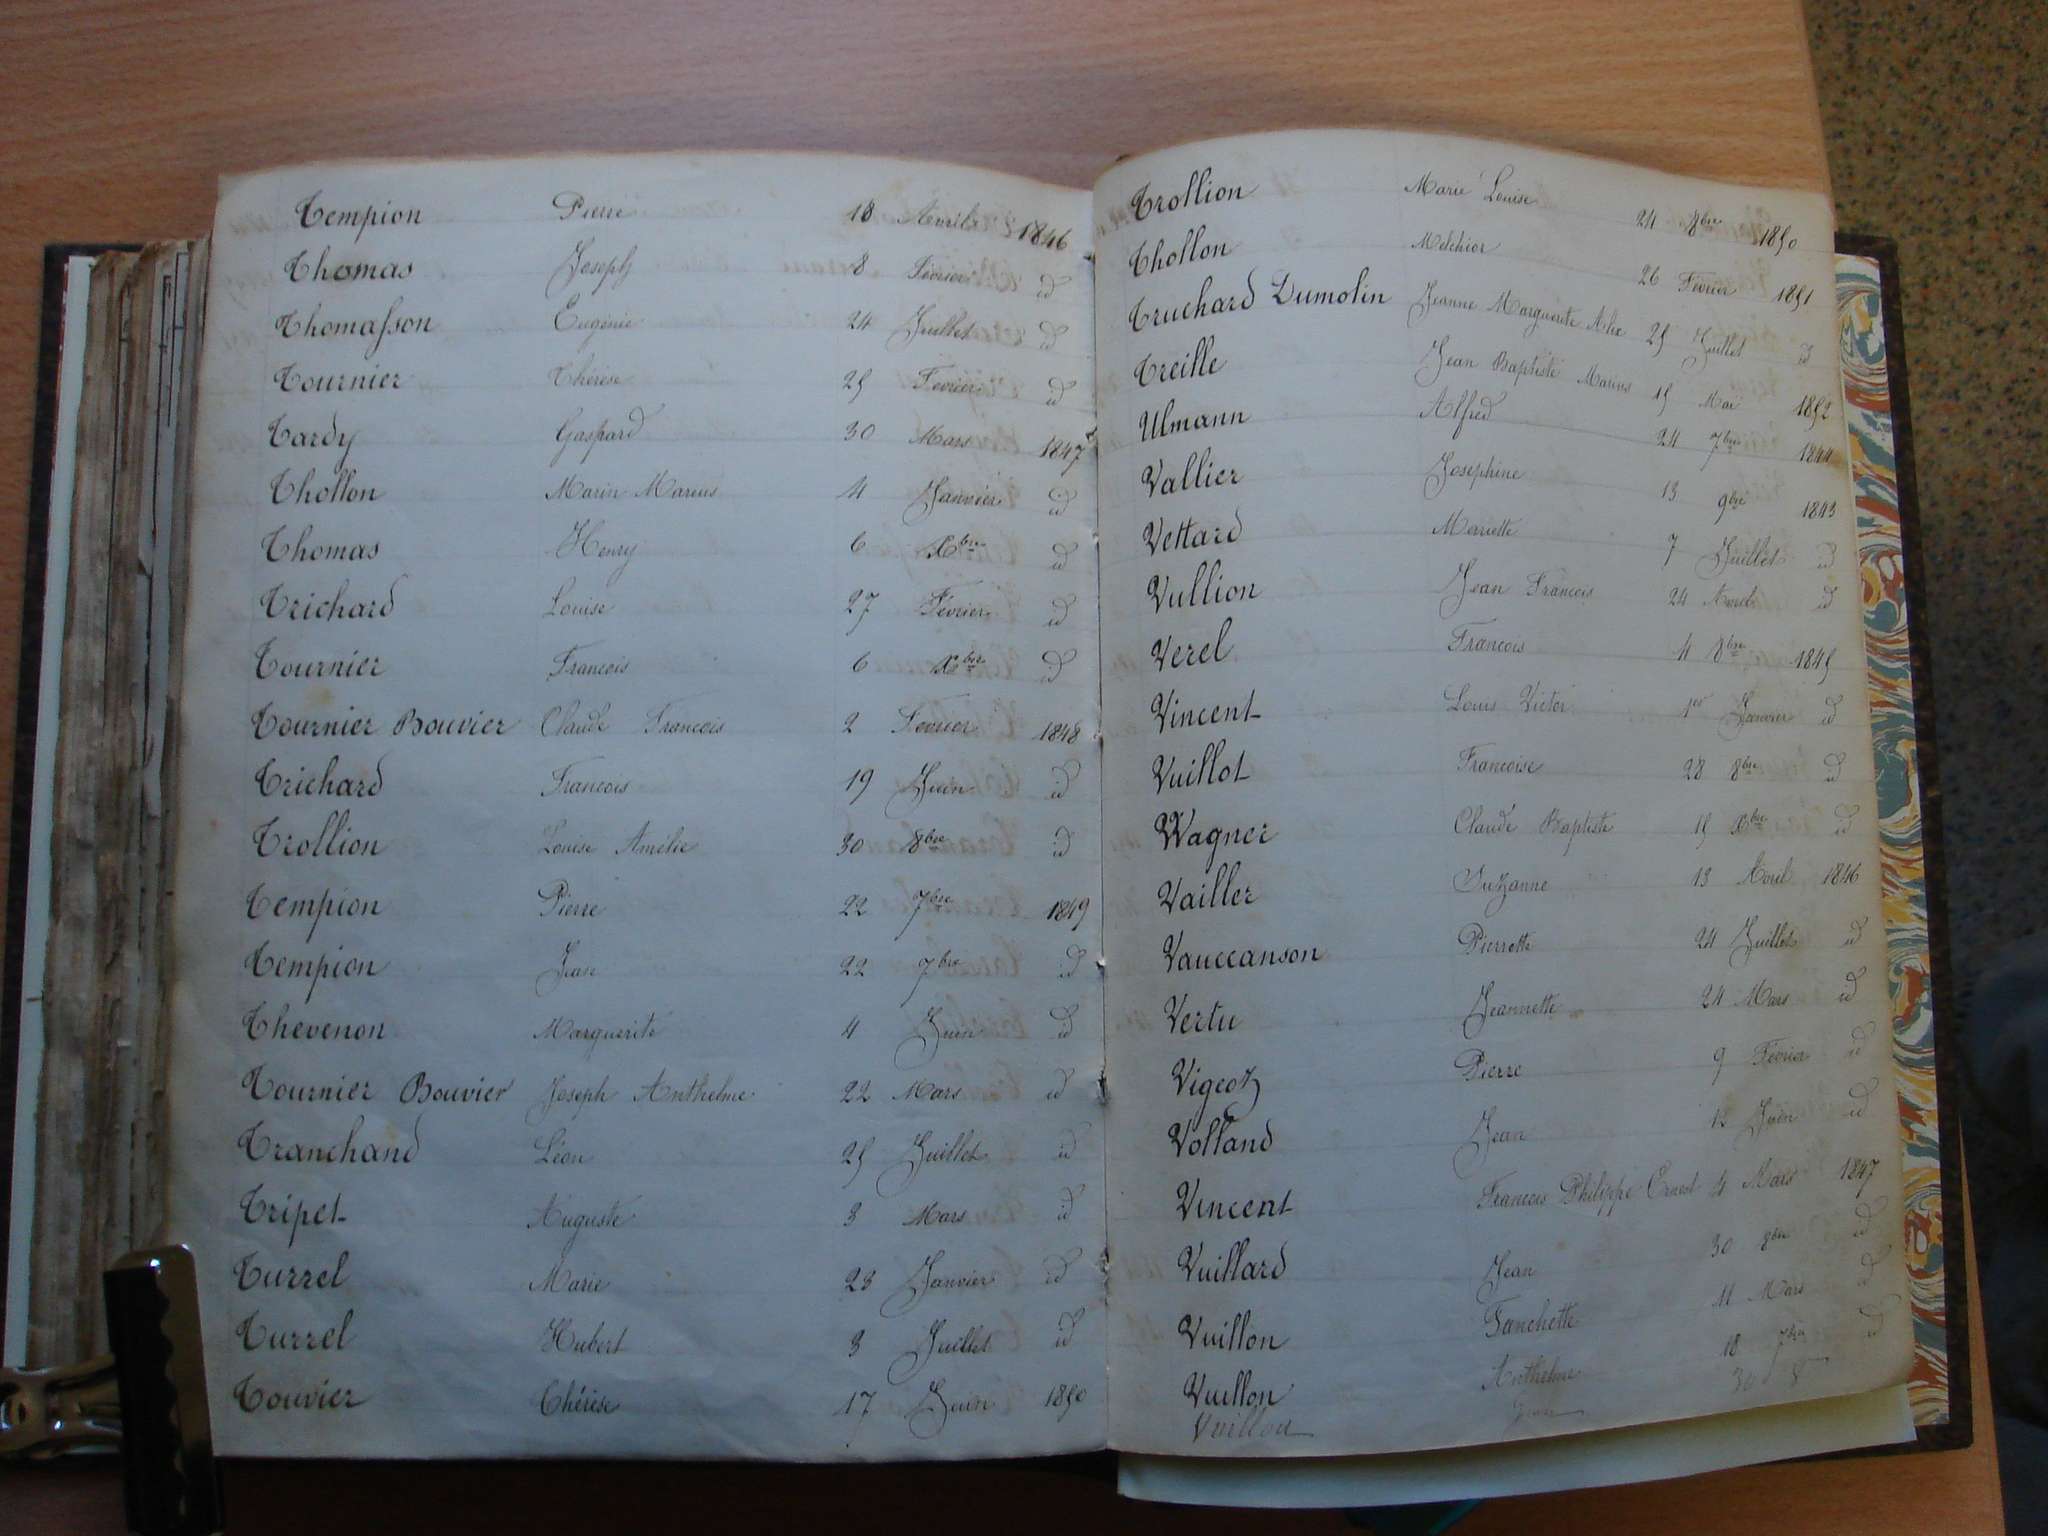 Tempion Pierre 18 Avril 1846
Thomas Joseph 8 Février id
Thomasson Eugénie 24 Juillet id
Tournier Thérèse 25 Fevrier id
Tardy Gaspard 30 Mars 1847
Thollon Marin Marius 4 Janvier id
Thomas Henry 6 Xbre id
Trichard Louise 27 Février id
Tournier Francois 6 Xbre id
Tournier Bouvier Claude Francois 2 Fevrier 1848
Trichard Francois 19 Juin id
Trollion Louise Amélie 30 8bre id
Tempion Pierre 22 7bre 1849
Tempion Jean 22 7bre id
Thevenon Marguerite 4 Juin id
Tournier Bouvier Joseph Anthelme 22 Mars id
Tranchand Léon 25 Juillet id
Tripet Auguste 3 Mars id
Turrel Marie 23 Janvier id
Turrel Hubert 3 Juillet id
Touvier Thérèse 17 Juin 1850
Trollion Marie Louise 24 8bre 1850
Thollon Melchior 26 Février 1851
Truchard Dumolin Jeanne Marguerite Alix 25 Juillet id
Treille Jean Baptiste Marius 15 Mai 1852
Ulmann Alfred 24 7bre 1844
Vallier Josephine 13 9bre 1843
Vettard Marriette 7 Juillet id
Vullion Jean Francois 24 Avril id
Verel Francois 4 8bre 1845
Vincent Louis Victor 1er Janvier id
Vuillot Francoise 28 8bre id
Wagner Claude Baptiste 15 Xbre id
Vailler Suzanne 13 Avril 1846
Vauccanson Pierrette 24 Juillet id
Vertu Jeannette 24 Mars id
Vigeoz Pierre 9 Février id
Volland Jean 12 Juin id
Vincent Francois Philippe Ernest 4 Mars 1847
Vuillard Jean 30 8bre id
Vuillon Fanchette 11 Mars id
Vuillon Anthelme 18 7bre id
Vuillon 30 8